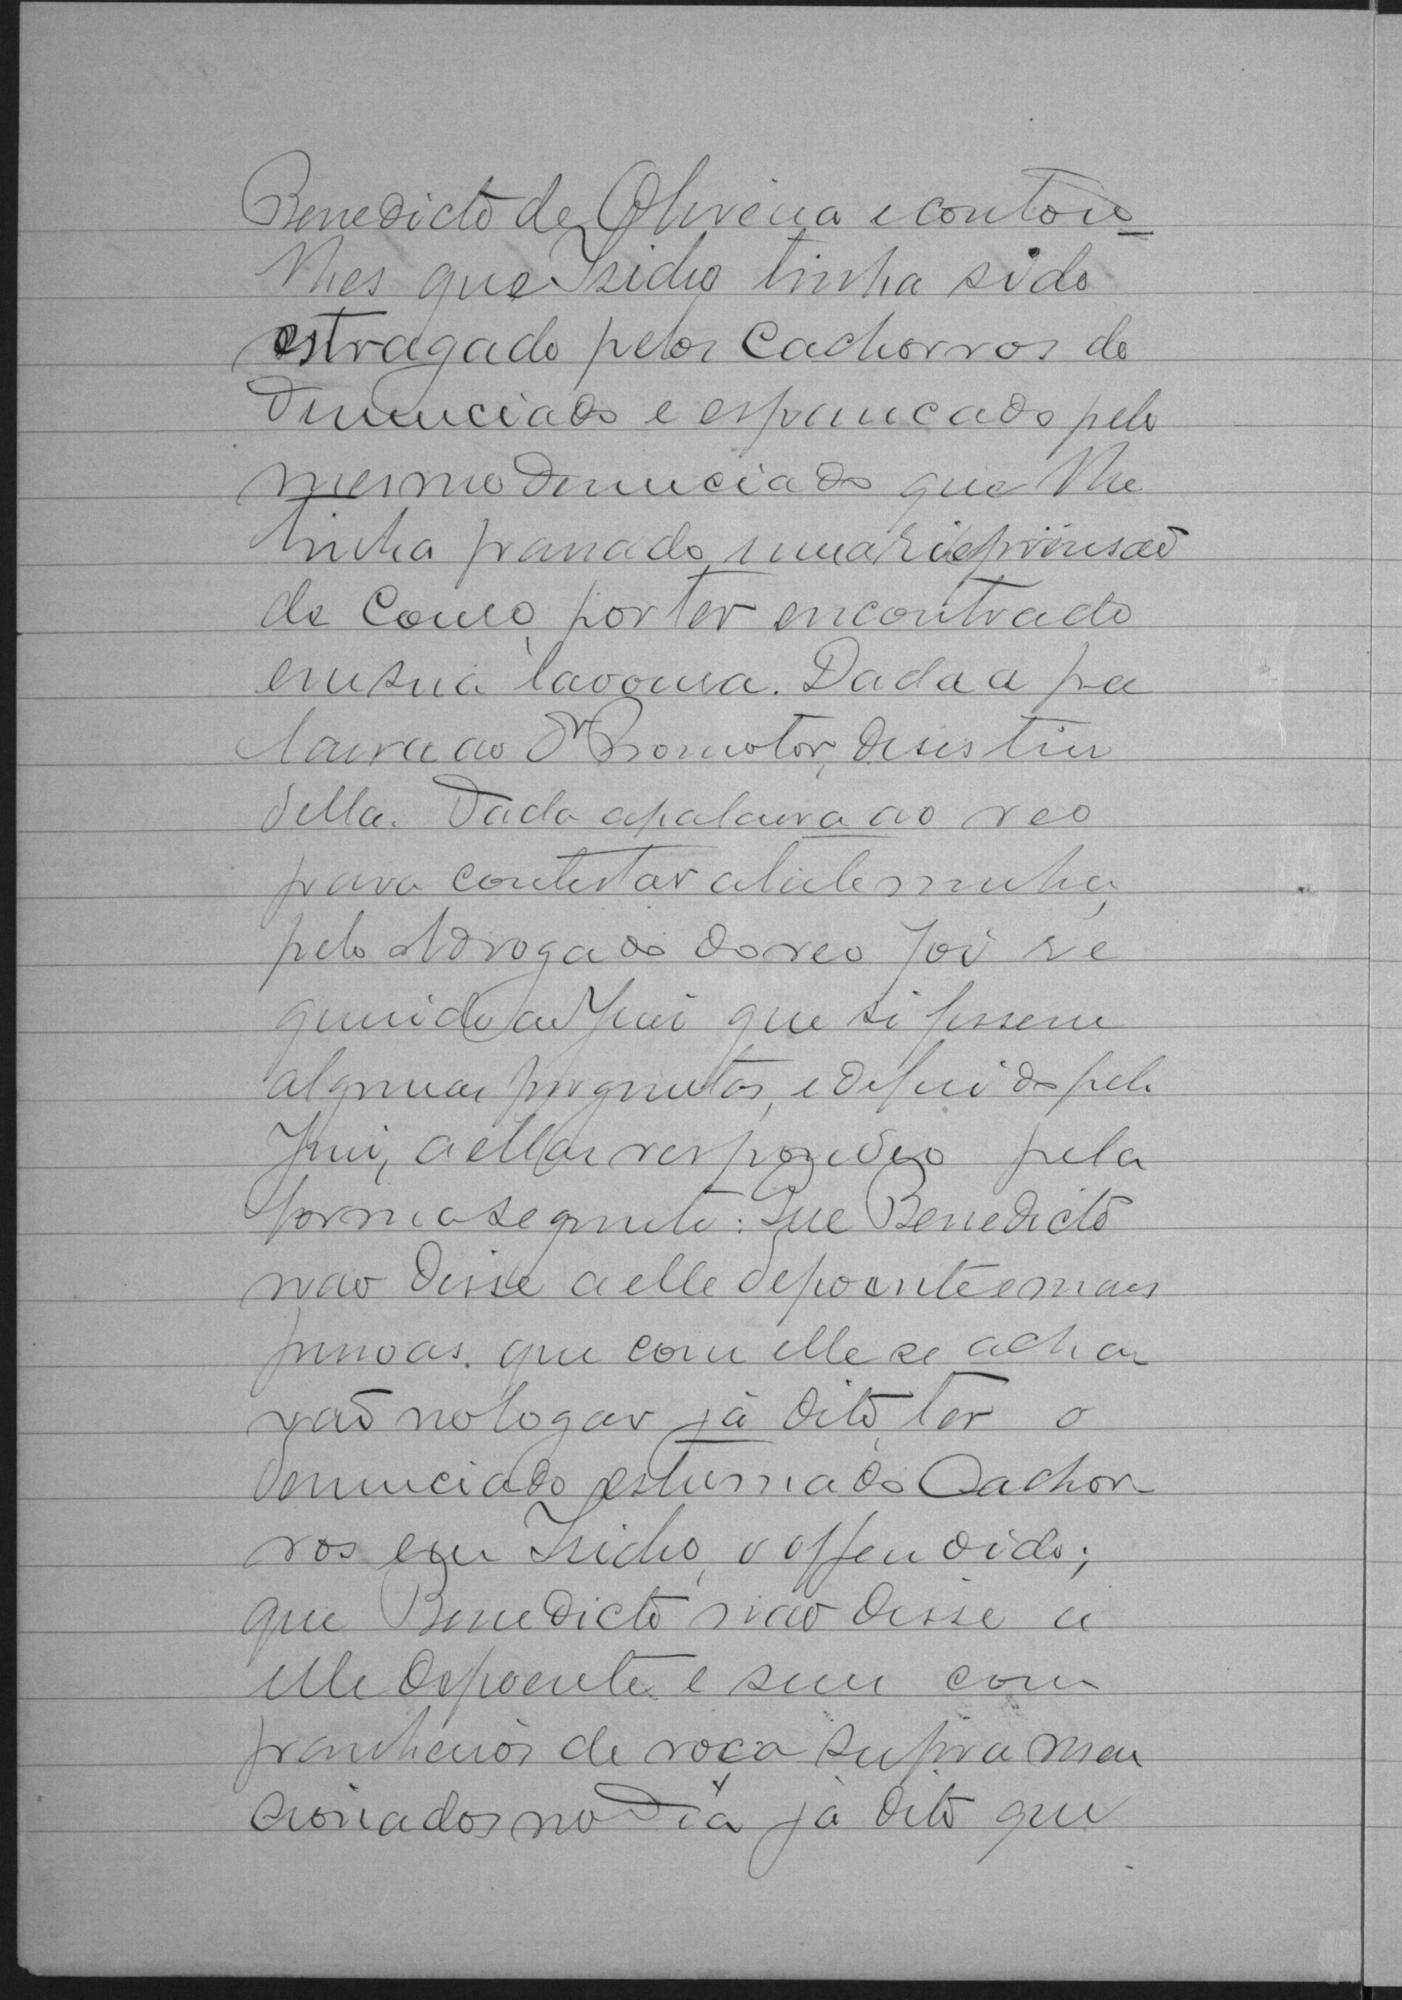 Benedicto de Oliveira e contou-
lhes que Izidro tinha sido
estragado pelos Cachorros do
denunciado e espancado pelo
mesmo denunciado que lhe
tinha passado uma
de Couro, por ter encontrado
em sua lavoura. Dada a pa
lavra ao Dr Promotor, desistiu
della. Dada a palavra ao reo
para contestar a testemunha,
pelo Advogado do reo foi re
querido ao Juiz que si fissem
algumas preguntas, e deferido pelo
Juiz, a ellas respondeo pela
forma seguinte: Que Benedicto
não disse a elle depoente e mais
pessoas que com elle se acha
vaõ no logar já dito, ter o
denunciado estumado Cachor
ros em Izidro, o offendido;
que Benedicto não disse a
elle depoente e seus com
panheiros de roça supra men
sionados no dia já dito que